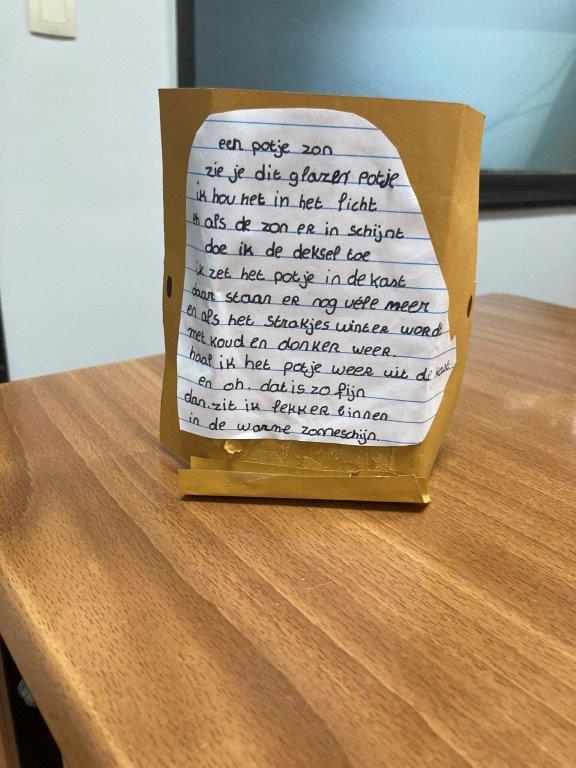 een potje zon
zie je dit glazen potje
ik hou het in het licht
en als de zon er in schijnt
doe ik de deksel toe
ik zet het potje in de kast
daar staan er nog vele meer
en als het strakjes winter word
met koud en donker weer.
haal ik het potje weer uit de kast
en oh. dat is zo fijn
dan. zit ik lekker binnen
in de warme zonneschijn.